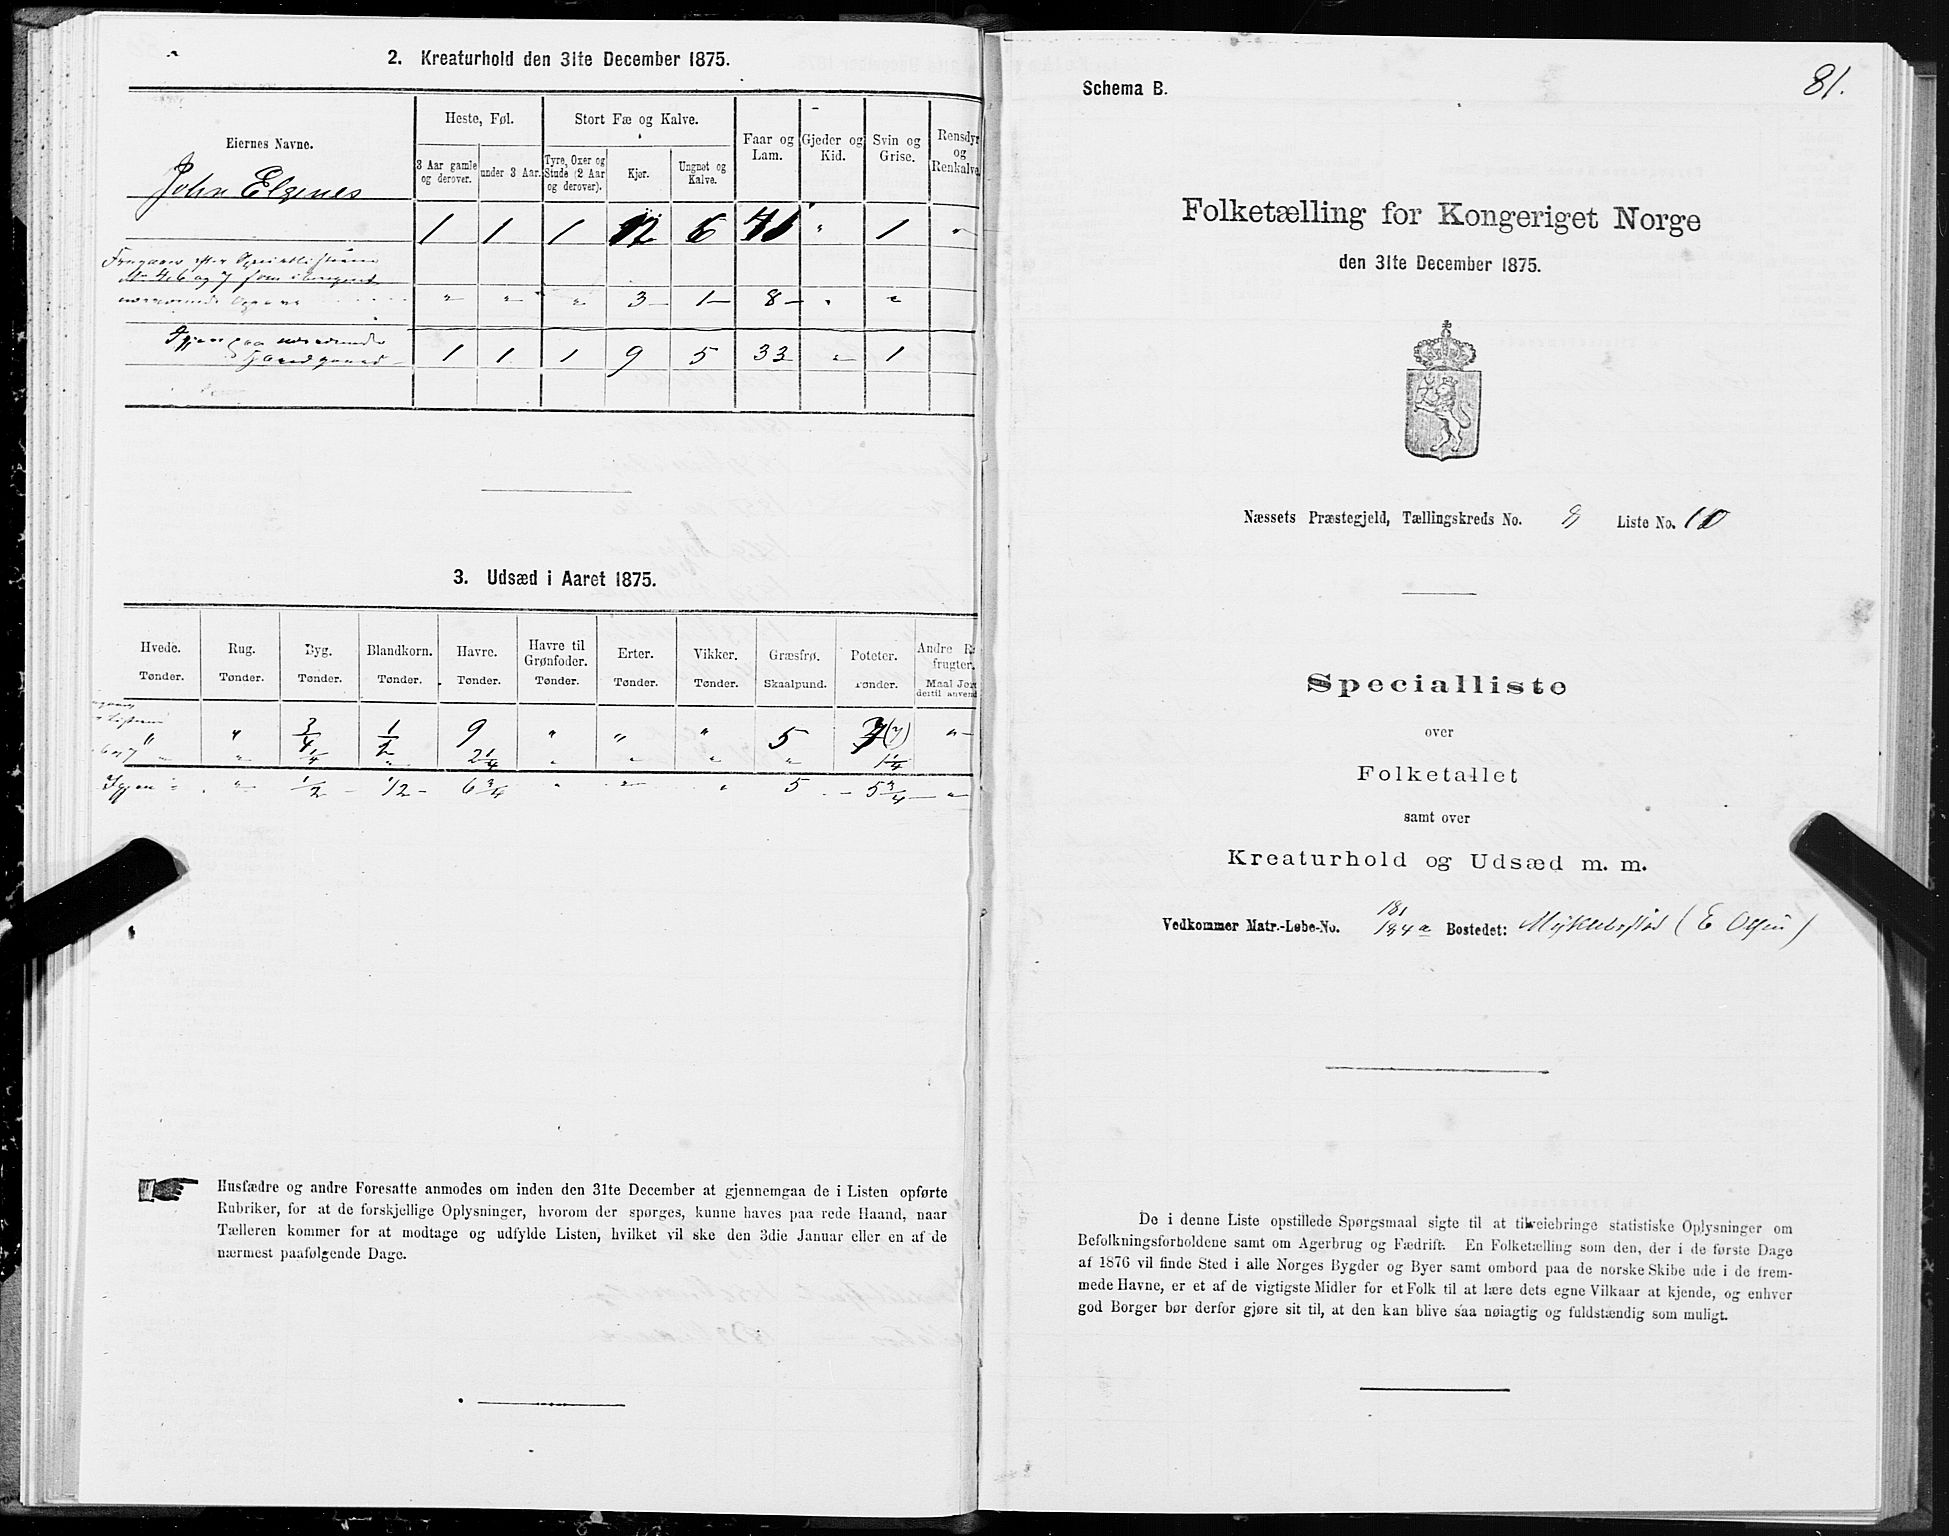 2. Kreaturhold den 31te December 1875.
Eiernes Navne.
Heste, Føl.
Stort Fæ og Kalve.
Faar og Lam.
Gjeder og Kid.
Svin og Grise.
Rensdyr og Renkalve
3 Aar gamle og derover.
under 3 Aar.
Tyre, Oxer og Stude (2 Aar og derover).
Kjør.
Ungnøt og Kalve.
John Elgenes
1 1 1 12 6 41 " 1 "
Fragaar efter Specialisterne
No 4, 6 og 7
" " " 3 1 8 " "
Igjen paa
1 1 1 9 5 33 " 1
3. Udsæd i Aaret 1875.
Hvede. Rug. Byg. Blandkorn. Havre. Havre til Grønfoder. Erter. Vikker. Græsfrø. Poteter. Andre R frugter.
Tønder. Tønder. Tønder. Tønder. Tønder. Tønder. Tønder. Tønder. Skaalpund. Tønder. Maal Jor dertil anvend
" " 3/4 1/2 9 " " " 5 7 (7) "
6 og 7 " " 1/4 " 2 1/4 " " " " 1 1/4
Igjen " " 1/2 1/2 6 3/4 " " " 5 5 3/4 "
Husfædre og andre Foresatte anmodes om inden den 31te December at gjennemgaa de i Listen opførte
Rubriker, for at de forskjellige Oplysninger, hvorom der spørges, kunne haves paa rede Haand, naar
Tælleren kommer for at modtage og udfylde Listen, hvilket vil ske den 3die Januar eller en af de
nærmest paafølgende Dage.
81.
Schema B.
Folketælling for Kongeriget Norge
den 31te December 1875.
Næssets Præstegjeld, Tællingskreds No. 8 Liste No. 10
Specialliste
over
Folketallet
samt over
Kreaturhold og Udsæd m. m.
181
Vedkommer Matr.-Løbe-No. 184a Bostedet: Myklebostad (E Olsen)
De i denne Liste opstillede Spørgsmaal sigte til at tilveiebringe statistiske Oplysninger om
Befolkningsforholdene samt om Agerbrug og Fædrift. En Folketælling som den, der i de første Dage
af 1876 vil finde Sted i alle Norges Bygder og Byer samt ombord paa de norske Skibe ude i de frem-
mede Havne, er et af de vigtigste Midler for et Folk til at lære dets egne Vilkaar at kjende, og enhver
god Borger bør derfor gjøre sit til, at den kan blive saa nøiagtig og fuldstændig som muligt.